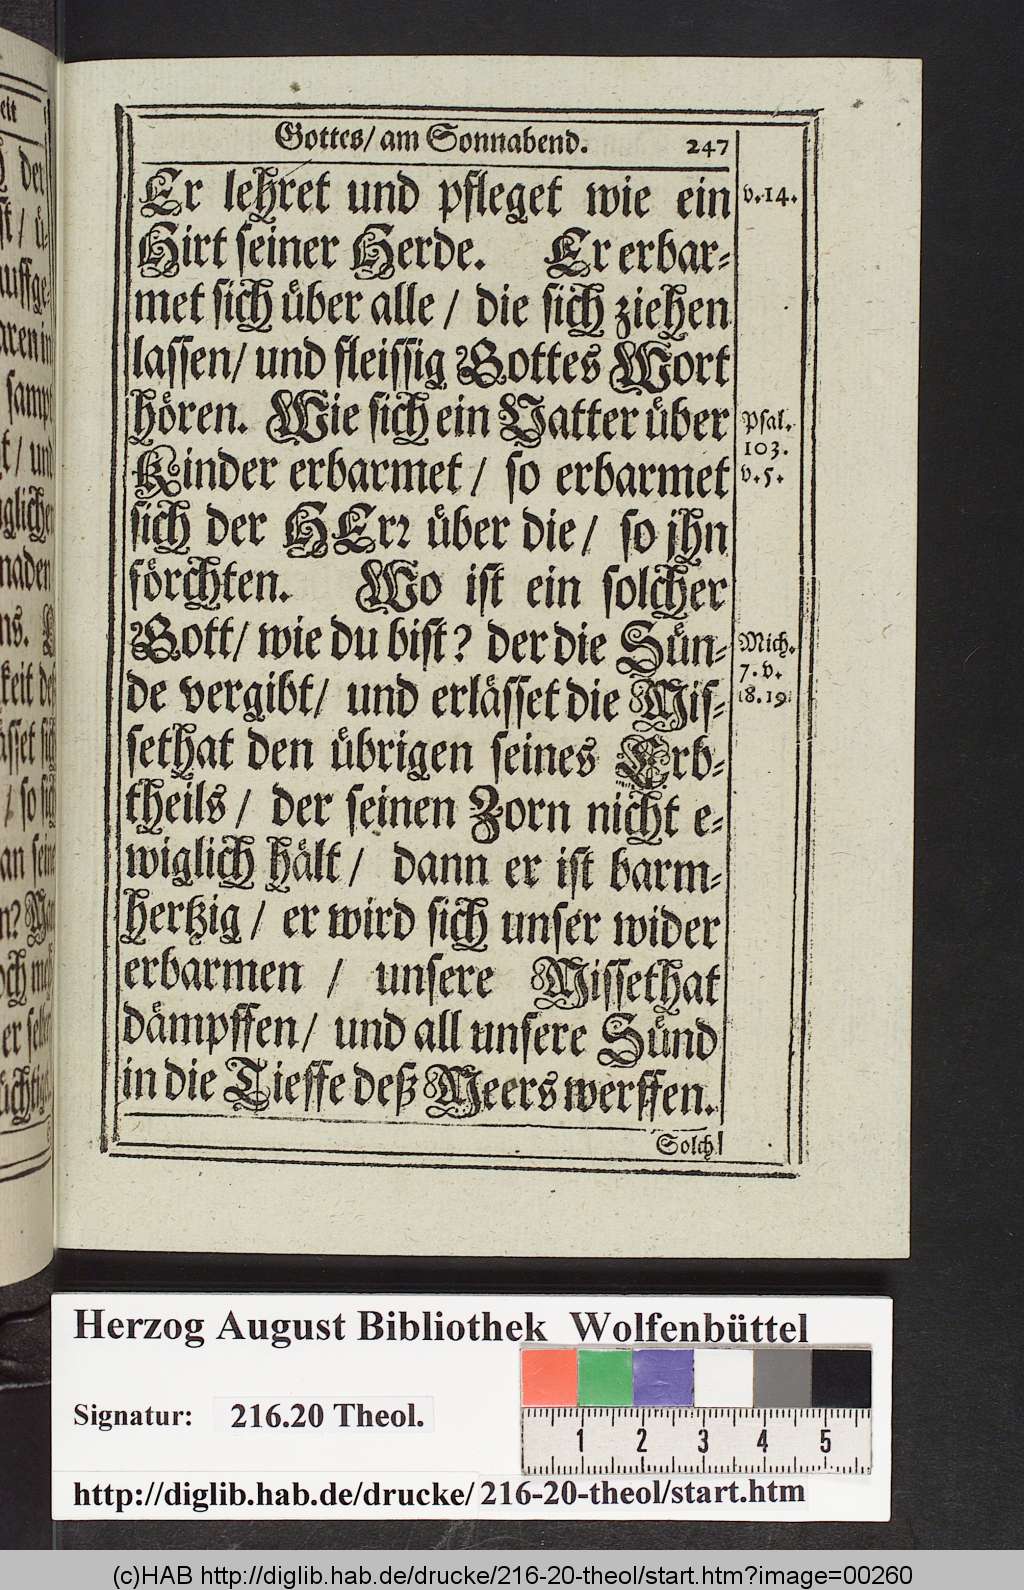 Gottes/ am Sonnabend. 247
Er lehret und pfleget wie ein
v. 14.
Hirt seiner Herde. Er erbar-
met sich über alle / die sich ziehen
lassen/ und fleissig Gottes Wort
hören. Wie sich ein Vatter über
Psal.
103.
v. 5.
Kinder erbarmet / so erbarmet
sich der HErꝛ über die / so jhn
förchten. Wo ist ein solcher
Gott/ wie du bist? der die Sün-
Mich.
7. v.
18.19.
de vergibt/ und erlässet die Mis-
sethat den übrigen seines Erb-
theils / der seinen Zorn nicht e-
wiglich hält / dann er ist barm-
hertzig / er wird sich unser wider
erbarmen / unsere Missethat
dämpffen/ und all unsere Sünd
in die Tieffe deß Meers werffen.
Solch
eit
der
sampt
/ und
naden
ns.
/ so sich
an seine
Herzog August Bibliothek Wolfenbüttel
Signatur: 216.20 Theol.
1 2 3 4 5
http://diglib.hab.de/drucke/216-20-theol/start.htm
(c)HAB http://diglib.hab.de/drucke/216-20-theol/start.htm?image=00260